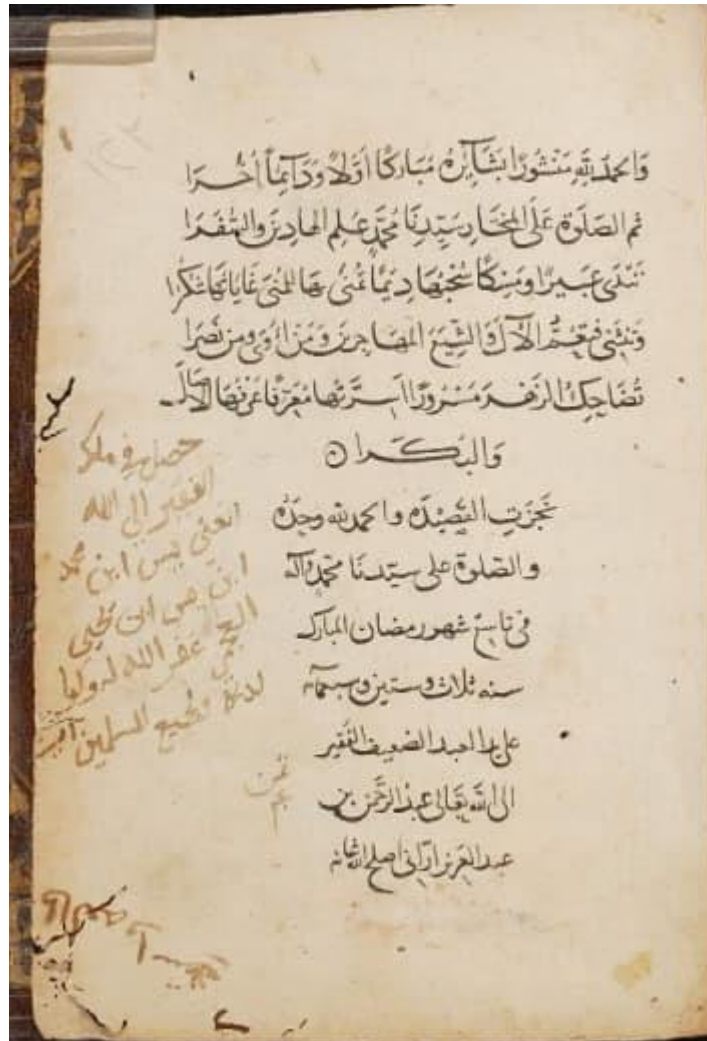 وَالحمدُ لِلَّهِ مَنْشُورًا بَشَائِرُهُ مُبَارَكًا أَوَّلًا وَدَائِمًا أُخَرَا
ثم الصَلوة عَلَى المختار سَيِّدِنَا مُحَمَّدٍ عَلَمِ الهادينَ والسُّفَرَا
تَنْدَى عَبِيرًا ومِسْكًا سُحْبُهَا دِيَمًا تُمْنَى بها للمُنَى غَايَاتُهَا شُكُرَا
وَتَنْثَنِي فَتَعُمُّ الآلَ وَالشِّيَعَ المهَاجِرِينَ وَمَنْ آوَى ومن نَصَرَا
تُضَاحِكُ الزَهْرَ مَسْرُورًا أَسِرَّتُهَا مُعَرَّفًا عَرْفُهَا الآصَالَ
والبُكَرَا
نَجَزَتِ القَصِيْدَه والحمد لله وحده
والصَلوة على سيدنا محمّد وآله
فى تاسع شهور رمضان المبارك
سنه ثلاث وستين وسبعمائه
على يد العبد الضعيف الفقير
الى الله تعالى عبد الرَّحمن بن
عبد العزيز اصلح الله شانه
حصل في ملك
الفقير الى الله
الغني يس ابن محمد
ابن يس ابن يحيى
غفر الله له ولوا
لديه ولجميع المسلمين آمين
ثمن